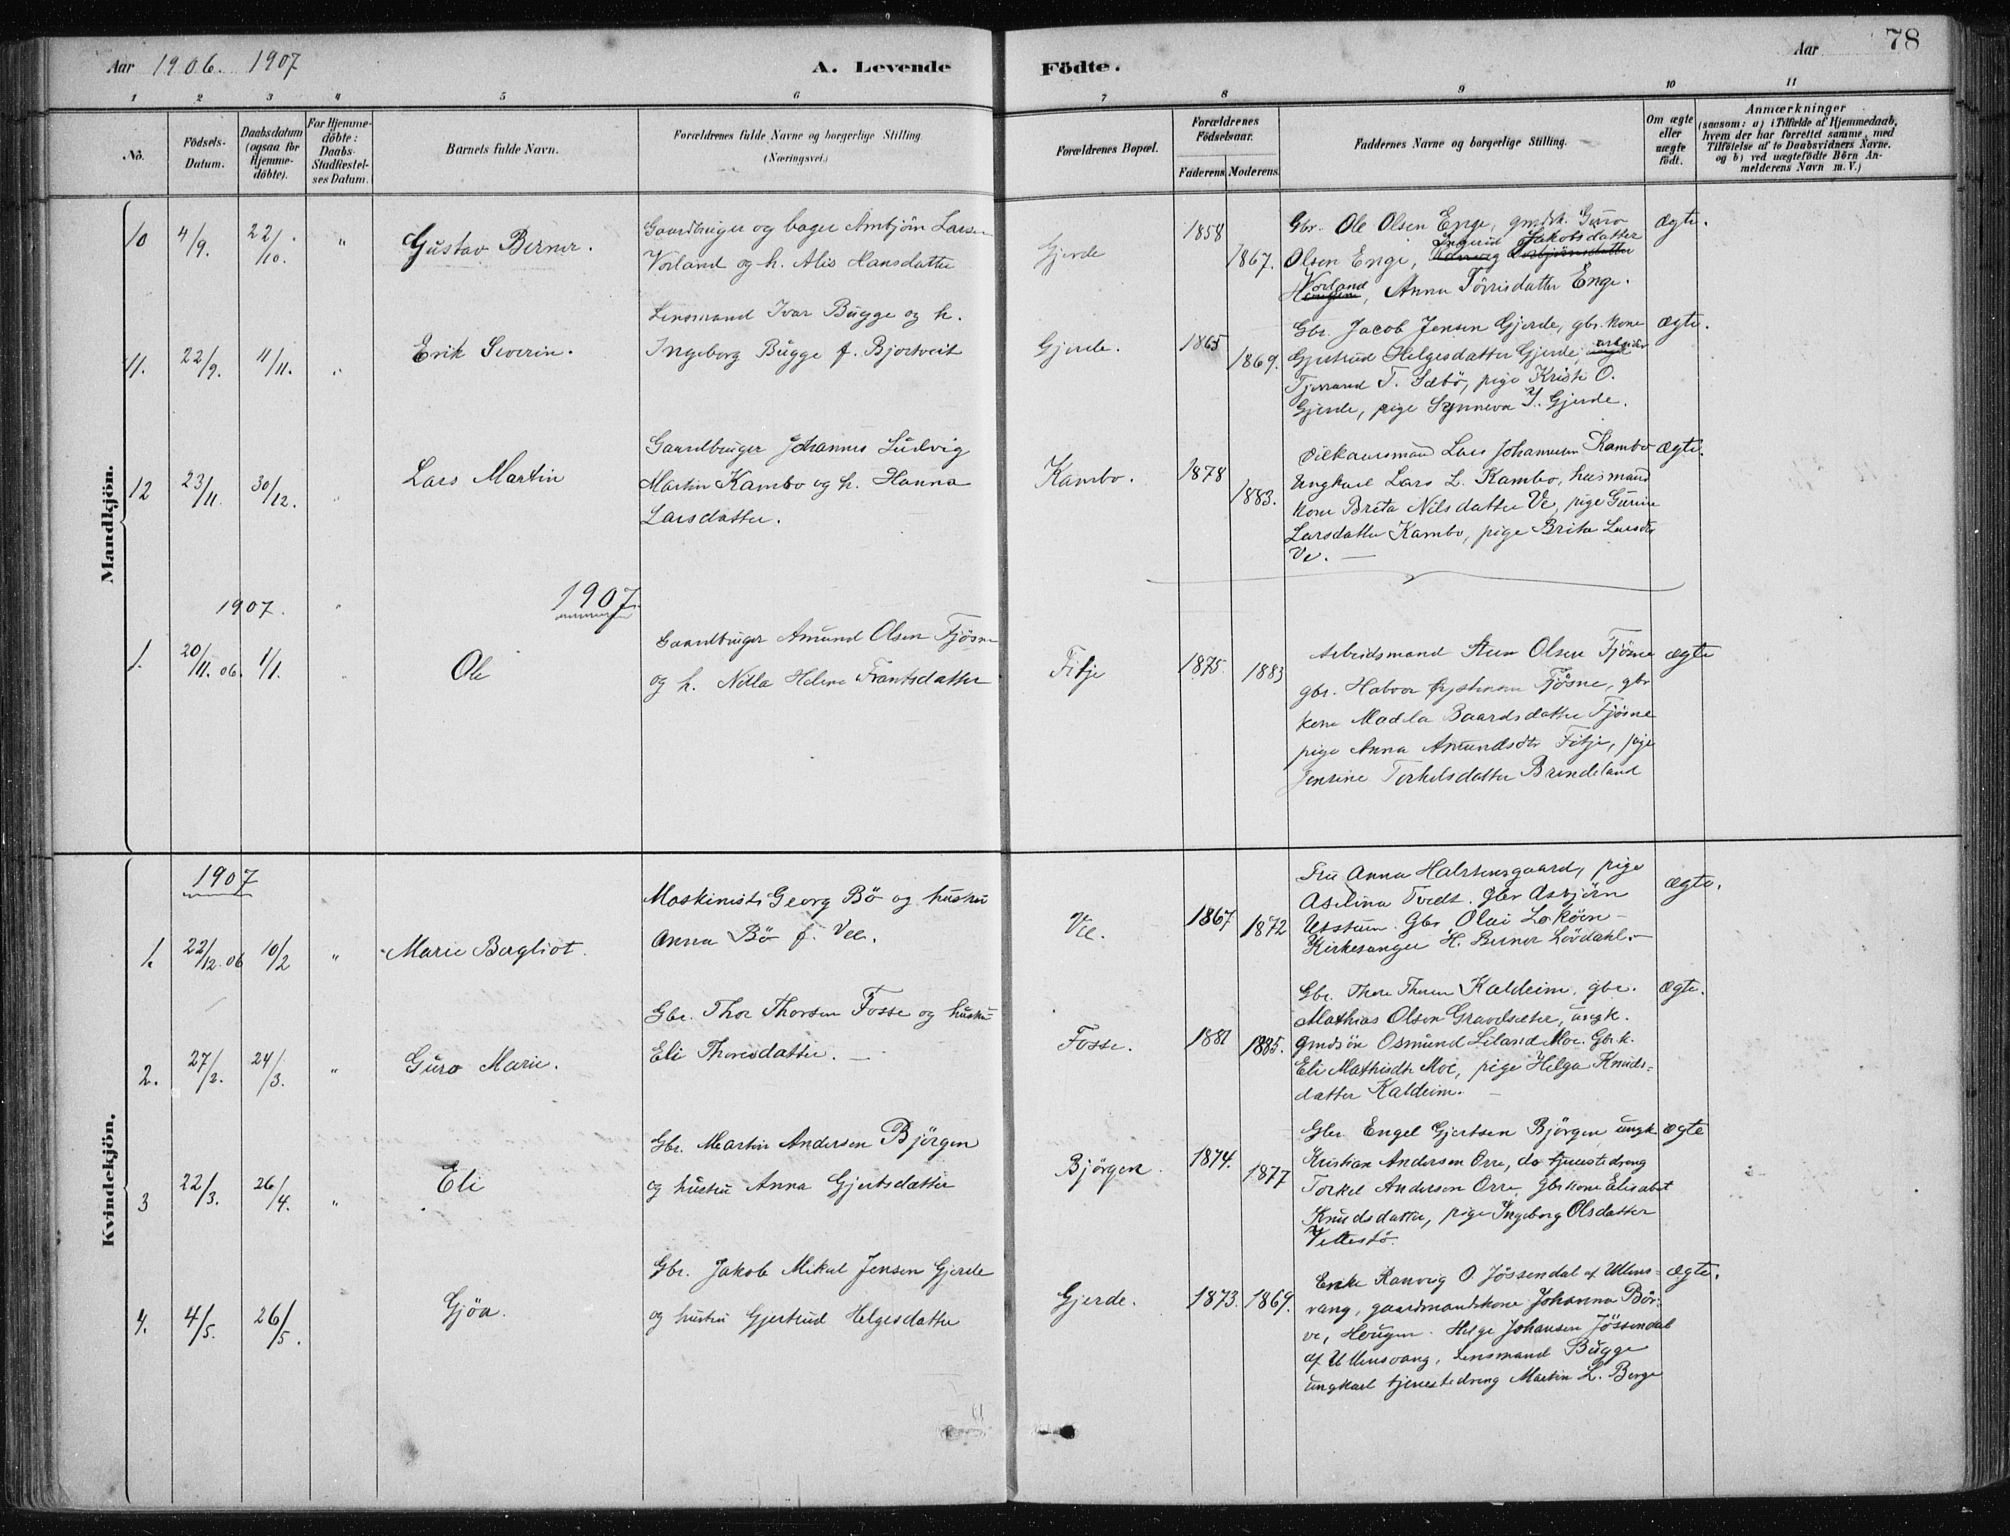 Aar 1906. 1907
A. Levende Födte.
Aar 78
1 2 3 4 5 6 7 8 9 10 11
No.
Födsels-Datum.
Daabsdatum (ogsaa for Hjemme-döbte).
For Hjemme-döbte: Daabs-Stadfæstel-ses Datum.
Barnets fulde Navn.
Forældrenes fulde Navne og borgerlige Stilling
(Næringsvei.)
Forældrenes Bopæl.
Forældrenes Födselsaar.
Faderens. Moderens.
Faddernes Navne og borgerlige Stilling.
Om ægte eller uægte födt.
Anmærkninger
(saasom: a) i Tilfælde af Hjemmedaab,
hvem der har forrettet samme, med
Tilföielse af to Daabsvidners Navne.
og b) ved uægtefödte Börn An-
melderens Navn m. V.)
Mandkjön.
10 4/9. 22/10. " Gustav Berner.
Gaardbruger og bager Arnbjörn Larsen
Vorland og h. Alis Hansdatter
Gjerde 1858 1867.
Gbr. Ole Olsen Enge, gmdsk. Guro
Ingerid Jakobsdatter
Olsen Enge,
Vorland
Anna Törrisdatter Enge.
ægte.
11. 22/9. 4/11. " Erik Severin.
Lensmand Ivar Bugge og h.
Ingeborg Bugge f. Bjortveit
Gjerde. 1865 1869.
Gbr. Jacob Jensen Gjerde, gbr. kone
Gjertrud Helgesdatter Gjerde, arbeider
Tjerand T. Sæbö, pige Kristi O.
Gjerde, pige Synneva I. Gjerde.
ægte.
12 23/11. 30/12. " Lars Martin
Gaardbruger Johannes Ludvig
Martin Kambo og h. Hanna
Larsdatter.
Kambo. 1878 1883.
Vilkaarsmand Lars Johannesen Kambo
Ungkarl Lars L. Kambo, husmand
kone Brita Nilsdatter Ve, pige Gurine
Larsdatter Kambo, pige Brita Larsdtr
Ve. —
ægte.
1907. " 1907.
1. 20/11. 06. 1/1. " Ole
Gaardbruger Amund Olsen Fjösne
og h. Nilla Helene Frantsdatter
Fitje 1875. 1883
Arbeidsmand Sten Olsen Fjösne
gbr. Halvor Fjösne, gbr
kone Madla Baardsdatter Fjösne
pige Anna Amundsdtr Fitje, pige
Jensine Torkelsdatter Brindeland
ægte
Kvindekjön.
1907
1. 22/12. 06 10/2 " Marie Bergliot.
Maskinist Georg Bö og hustru
Anna Bö f. Vee.
Vee. 1867 1872
Fru Anna Halstensgaard, pige
Aselina Tvedt. Gbr Asbjörn
Utstum. Gbr. Olai Loköen —
Kirkesanger H. Berner Lövdahl. —
ægte.
2. 27/2. 24/3. " Guro Marie.
Gbr. Thor Thorsen Fosse og hustru
Eli Thoresdatter. —
Fosse. 1881 1885.
Gbr. Thore Thoresen Kaldeim, gbr.
Mathias Olsen Gravdsæter, ungk.
gmdsön Osmund Leland Moe. Gbr. k.
Eli Mathisdtr Moe, pige Helga Knuds-
datter Kaldeim. —
ægte.
3 22/3. 26/4. " Eli
Gbr. Martin Andersen Björgen
og hustru Anna Gjertsdatter
Björgen. 1874. 1877
Gbr. Engel Gjertsen Björgen ungk
Kristian Andersen Orre, do tjenestedreng
Torkel Andersen Orre, gbrkone Elisabet
Knudsdatter, pige Ingeborg Olsdatter
Vettestö.
ægte
4. 4/5. 26/5. Gjöa.
Gbr. Jakob Mikal Jensen Gjerde
og hustru Gjertrud Helgesdatter
Gjerde. 1873. 1869.
Enke Ranveig O. Jössendal af Ullens-
vang, gaardmandskone Johanna Bör-
ve, Hougen. Helge Johansen Jössendal
af Ullensvang, Lensmand Bugge
ungkarl tjenestedreng Martin L. Berge
ægte.